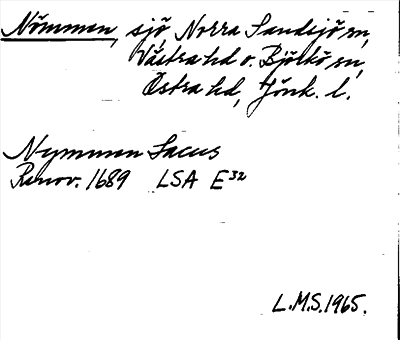 Nömmen, sjö, Norra Sandsjö sn,
Västra hd o. Björkö sn,
Östra hd, Jönk. l.
Nymmen Lacus
Renov. 1689 LSA E³²
L.M.S. 1965.